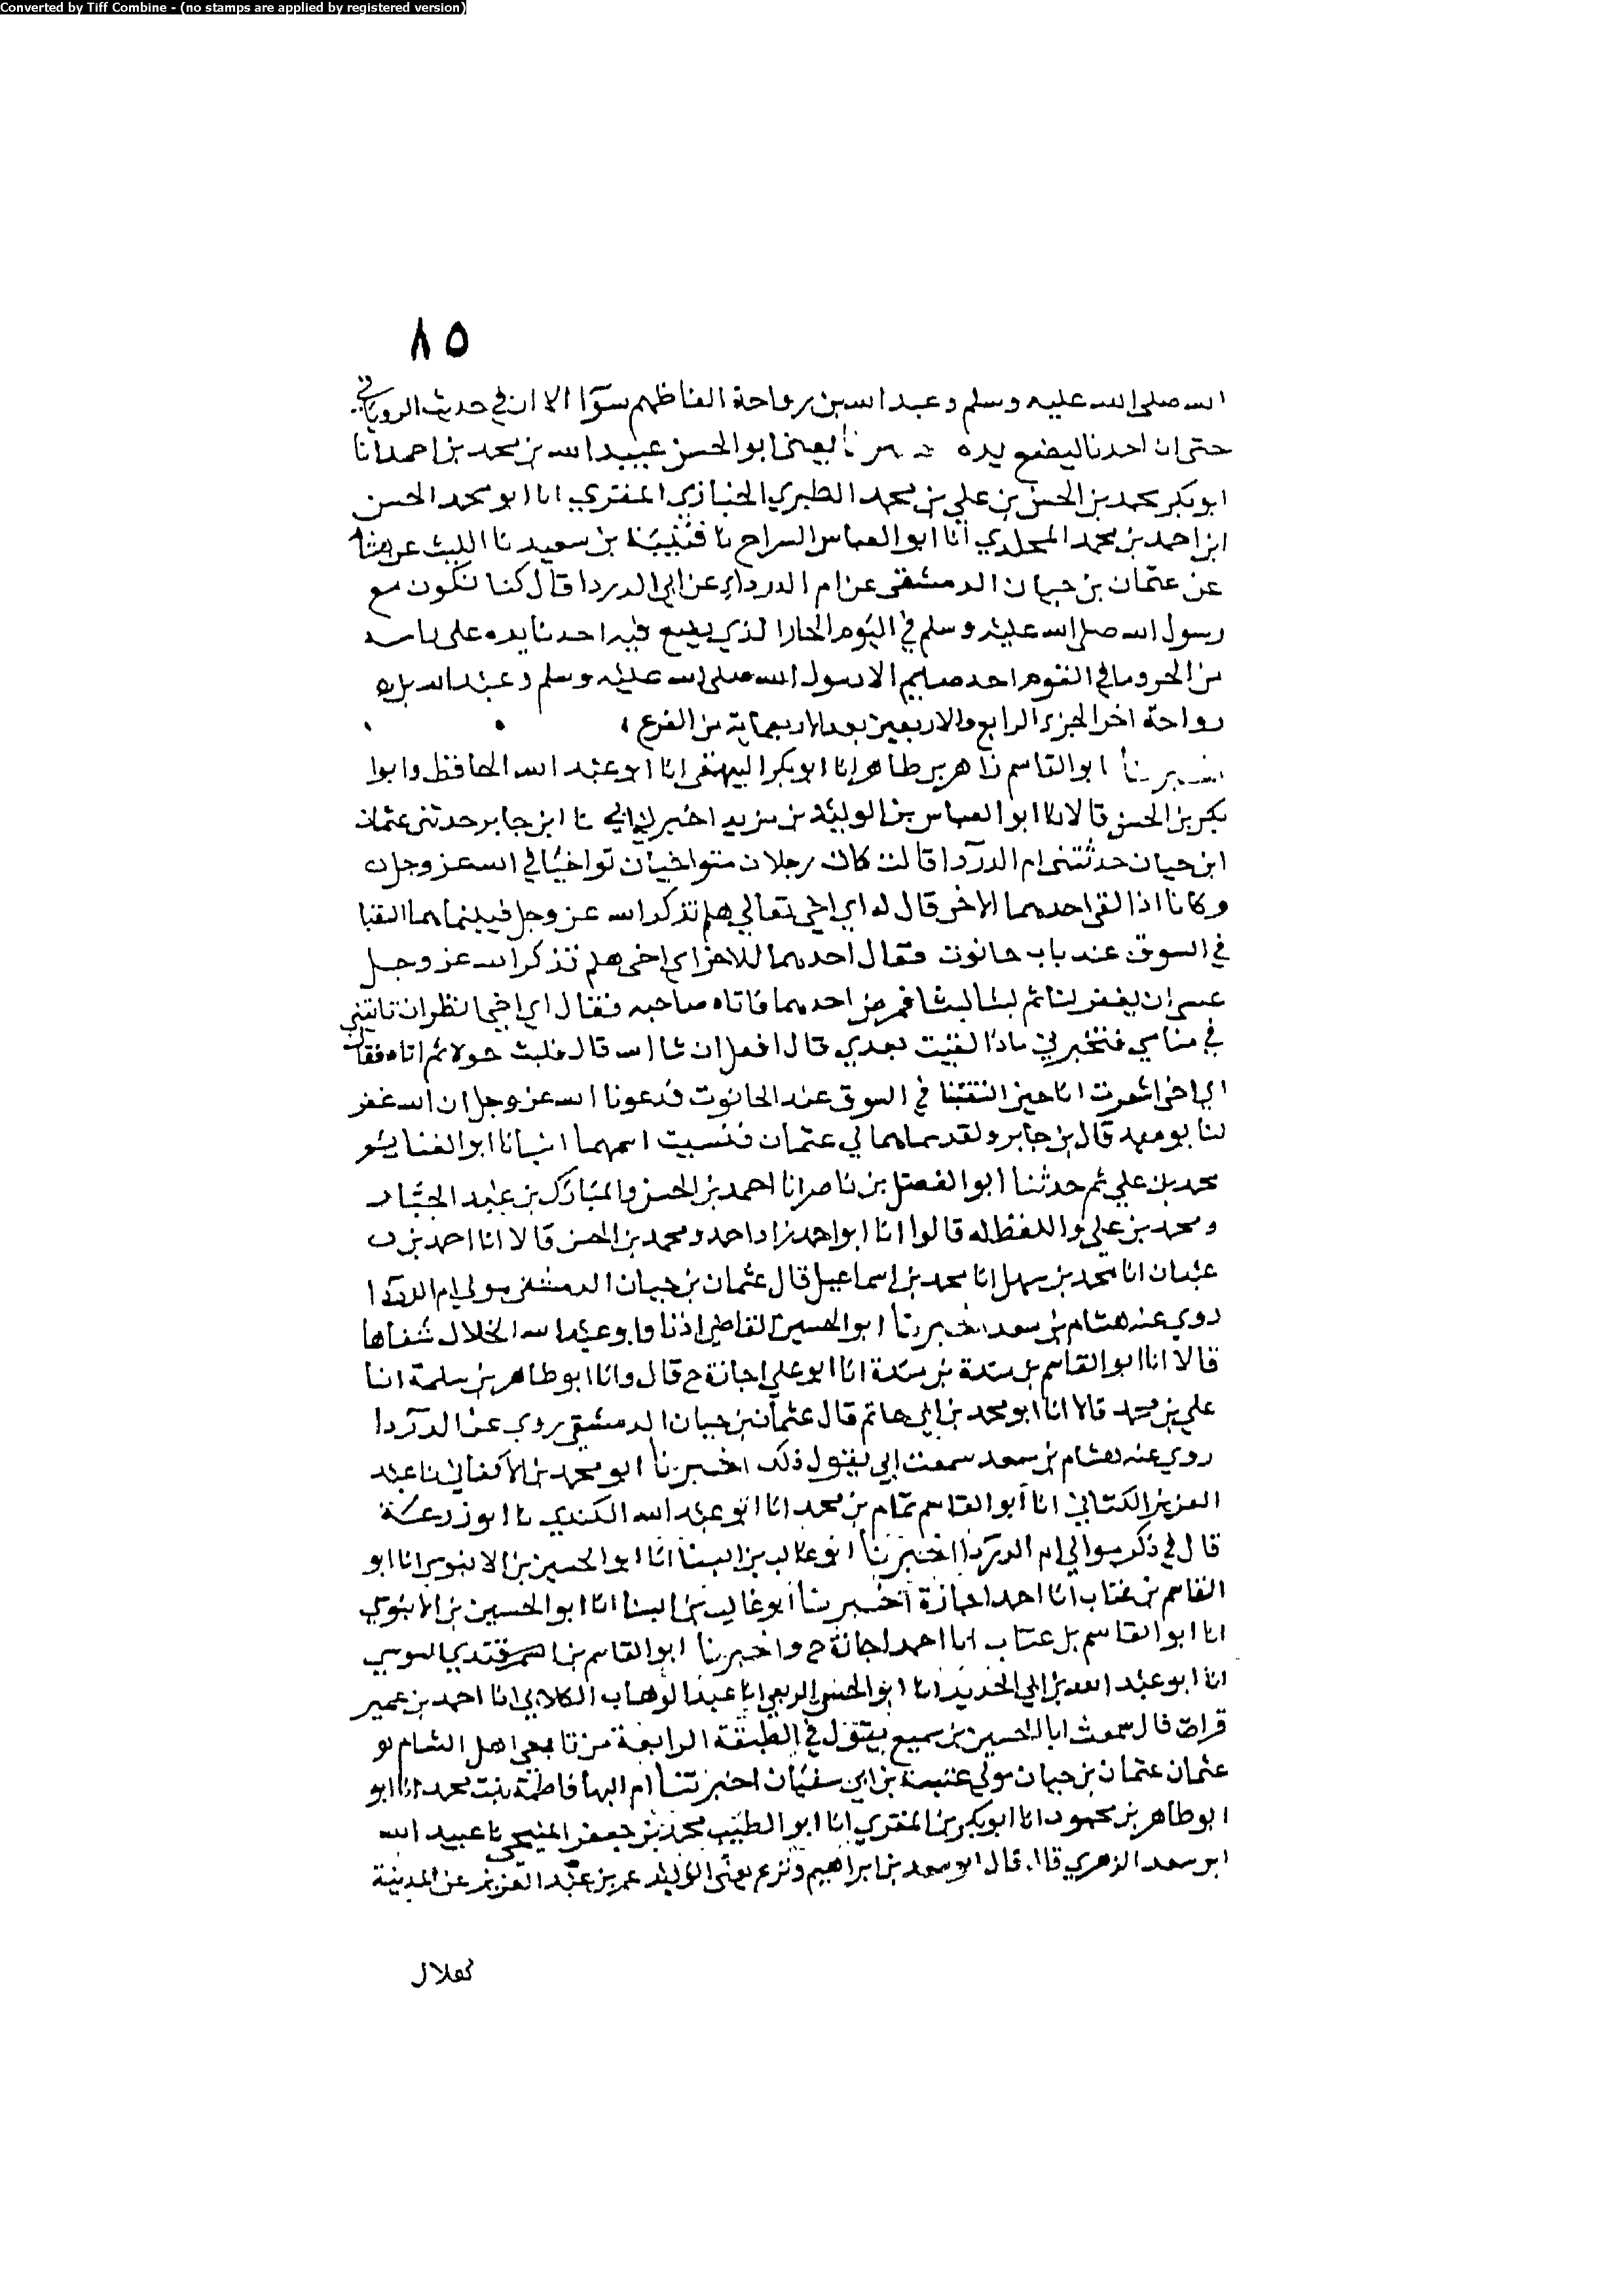 Converted by Tiff Combine - (no stamps are applied by registered version)
٨٥
الله صلى الله عليه وسلم وعبد الله بن رواحة الفاظهم سوآ الا ان في حديث الروياني
حتى ان احدنا ليضع يده ابو الحسن عبيد الله بن محمد بن احمد انا
ابو بكر محمد بن الحسن بن علي بن محمد الطبري الخبازي المقري انا ابو محمد الحسن
ابن احمد بن محمد المخلدي انا ابو العباس السراج نا قتيبة بن سعيد نا الليث عن هشام
عن عثمان بن حيان الدمشقي عن ام الدرداء عن ابي الدردا قال كنا نكون مع
رسول الله صلى الله عليه وسلم في اليوم الحار الذي يضع فيه احدنا يده على راسه
من الحر وما في القوم احد صايم الا رسول الله صلى الله عليه وسلم وعبد الله بن
رواحة اخر الجزء الرابع والاربعين بعد الاربعماية من الفرع
ابو القاسم زاهر بن طاهر انا ابو بكر البيهقي انا ابو عبد الله الحافظ وابوا
بكر بن الحسن قالا نا ابو العباس بن الوليد بن مزيد اخبرني ابي نا ابن جابر حدثني عثمان
ابن حيان حدثتني ام الدردآ قالت كان رجلان متواخيان تواخيا في الله عز وجل
وكانا اذا لقي احدهما الاخر قال له اي اخي تعالي هلم نذكر الله عز وجل فبينما هما التقيا
في السوق عند باب حانوت فقال احدهما للاخر اي اخي هلم نذكر الله عز وجل
عسى ان يغفر لنا ثم لبثا لبثا فمرض احدهما فاتاه صاحبه فقال اي اخي انظر ان تاتيني
في منامي فتخبرني ماذا لقيت بعدي قال افعل ان شا الله قال فلبث حولا ثم اتاه فقال
اي اخي اشعرت انا حين التقينا في السوق عند الحانوت فدعونا الله عز وجل ان الله غفر
لنا يوميذ قال بن جابر ولقد سماهما لي عثمان فنسيت اسمهما انبانا ابو الغنايم
محمد بن علي ثم حدثنا ابو الفضل بن ناصر انا احمد بن الحسن والمبارك بن عبد الجبار
ومحمد بن علي واللفظ له قالوا انا ابو احمد زاد احمد ومحمد بن الحسن قالا انا احمد بن
عبدان انا محمد بن سهل انا محمد بن اسماعيل قال عثمان بن حيان الدمشقي مولى ام الدردآ
روى عنه هشام بن سعد اخبرنا ابو الحسين القاضي اذنا وابو عبد الله الخلال شفاها
قالا انا ابو القاسم بن مندة بن مندة انا ابو علي اجازة ح قال وانا ابو طاهر بن سلمة انا
علي بن محمد قالا انا ابو محمد بن ابي حاتم قال عثمان بن حيان الدمشقي روى عن الدردا
روى عنه هشام بن سعد سمعت ابي يقول ذلك اخبرنا ابو محمد بن الاكفاني نا عبد
العزيز الكتاني انا ابو القاسم تمام بن محمد انا ابو عبد الله الكندي نا ابو زرعة
قال في ذكر موالي ام الدردا اخبرنا ابو غالب بن البنا انا ابو الحسين بن الابنوسي انا ابو
القاسم بن عتاب انا احمد اجازة اخبرنا ابو غالب بن البنا انا ابو الحسين بن الابنوسي
انا ابو القاسم بن عتاب انا احمد اجازة ح واخبرنا ابو القاسم بن السمرقندي السوسي
انا ابو عبد الله بن ابي الحديد انا ابو الحسن الربعي انا عبد الوهاب الكلابي انا احمد بن عمير
قراة قال سمعت ابا الحسين بن سميع يقول في الطبقة الرابعة من تابعي اهل الشام
عثمان عثمان بن حيان مولى عتبة بن ابي سفيان اخبرتنا ام البها فاطمة بنت محمد انا ابو
ابو طاهر بن محمود انا ابو بكر بن المقري انا ابو الطيب محمد بن جعفر المنبجي نا عبيد الله
ابن سعد الزهري قال قال ابو سعد بن ابراهيم ونزع يعني الوليد عمر بن عبد العزيز عن المدينة